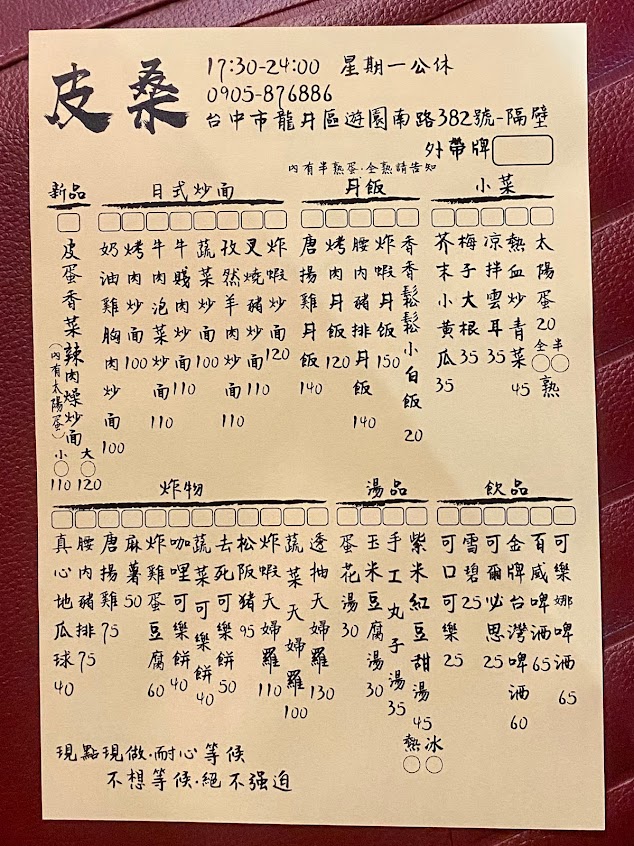 皮桑
17:30-24:00 星期一公休
0905-876886
台中市龍井區遊園南路382號-隔壁
外帶牌
內有半熟蛋·全熟請告知
新品
皮蛋香菜辣肉燥炒面
(內有太陽蛋)
小 大
110 120
日式炒面
奶油雞胸肉炒面100
烤肉炒面100
牛肉泡菜炒面110
牛賤炒面110
蔬菜炒面100
孜然羊肉炒面110
叉燒豬炒面110
炸蝦炒面120
丼飯
唐揚雞丼飯140
烤肉丼飯120
腰內豬排丼飯140
炸蝦丼飯150
香香鬆鬆小白飯20
小菜
芥末小黃瓜35
梅子大根35
涼拌雲耳35
熱血炒青菜45
太陽蛋20
全 半
熟
炸物
真心地瓜球40
腰內豬排75
唐揚雞75
麻薯50
炸雞蛋豆腐60
咖哩可樂餅40
蔬菜可樂餅40
去死可樂餅50
松阪豬95
炸蝦天婦羅110
蔬菜天婦羅100
透抽天婦羅130
湯品
蛋花湯30
玉米豆腐湯30
手工丸子湯35
紫米紅豆甜湯45
熱 冰
飲品
可口可樂25
雪碧25
可爾必思25
金牌台灣啤酒60
百威啤酒65
可樂娜啤酒65
現點現做·耐心等候
不想等候·絕不强迫